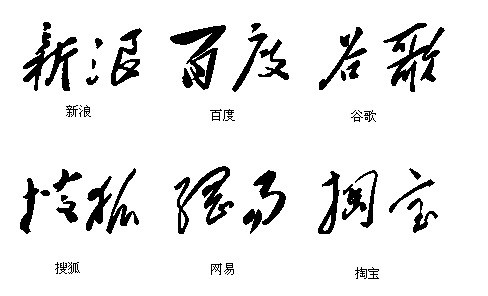 新浪 百度 谷歌
新浪 百度 谷歌
搜狐 网易 掏宝
搜狐 网易 掏宝